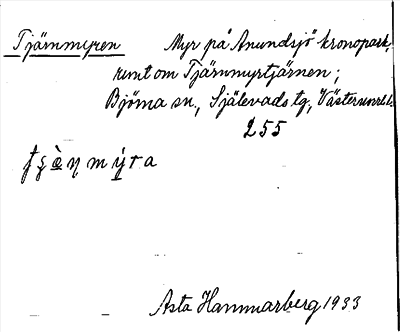 Tjärnmyren Myr på Anundsjö kronopark,
runt om Tjärnmyrtjärnen;
Björna sn., Själevads tg, Västernorrl.
255
Asta Hammarberg 1933